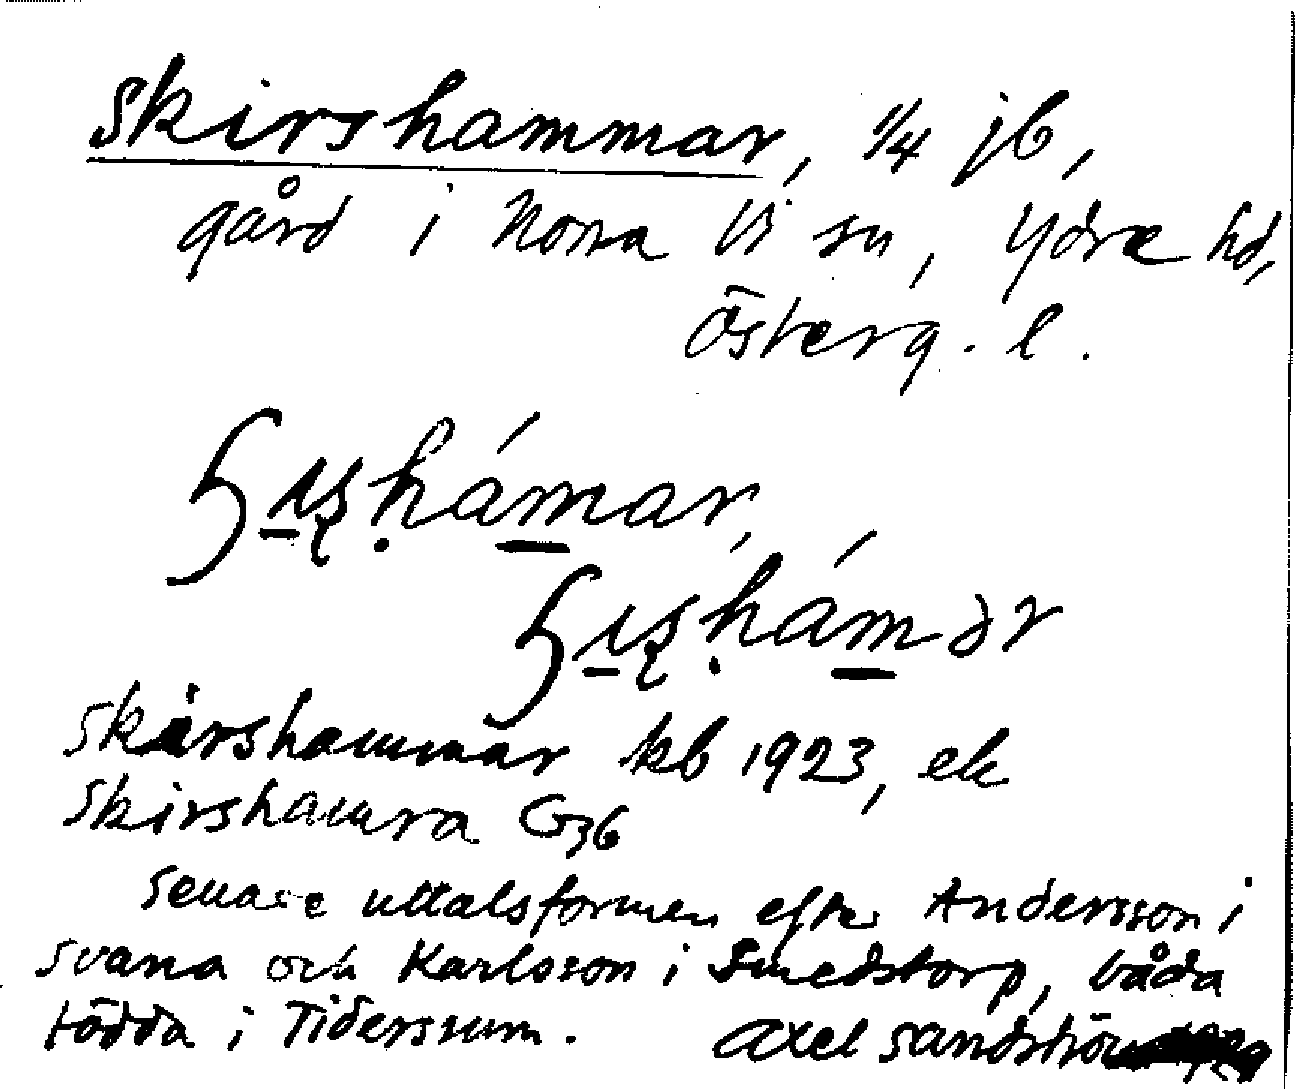 Skirshammar, 1/4 jb,
gård i Norra Vi sn, Ydre hd,
Österg. l.
Skirshammar kb 1923, ek
Skirshamra G36
Senare uttalsformen efter Andersson i
Svana och Karlsson i Smedstorp, båda
födda i Tidersrum.
Axel Sandström